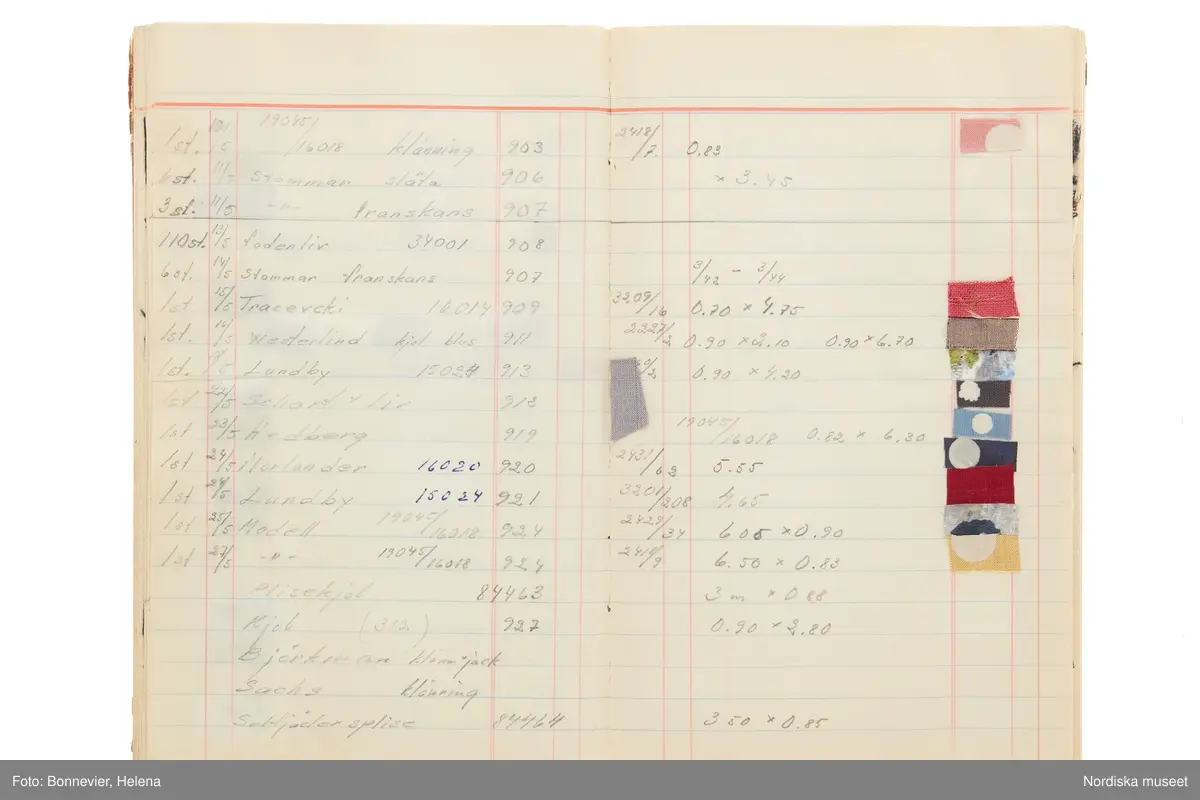 19045/
1 st. /5 /16018 klänning 903 2418/7 0.83
6 st. 11/5 Stommar släta 906 × 3.45
3 st. 11/5 -"- franskans 907
110 st. 13/5 fodenliv 34001 908
6 st. 14/5 Stommar franskans 907 3/42 - 3/44
1 st 15/5 16014 909 3209/16 0.70 × 4.75
1 st. /5 Wederlind kjol blus 911 2227/2 0.90 × 2.10 0.90 × 6.70
1 st. /5 Lundby 15024 913 /2 0.90 × 4.20
1 st 22/5 liv 912
1 st 23/5 Hedberg 919 19045/16018 0.82 × 6.30
1 st 24/5 Norlander 16020 920 2431/62 5.55
1 st 24/5 Lundby 15024 921 3201/208 4.65
1 st 25/5 Modell 19045/16018 924 2429/34 6 05 × 0.90
1 st 27/5 -"- 19045/16018 924 2419/9 6.50 × 0.83
Plisekjol 84463 3 m × 0.88
Kjol (312) 927 0.90 × 2.80
Björkman
Sachs klänning
84464 3 50 × 0.85
Foto: Bonnevier, Helena
Nordiska museet